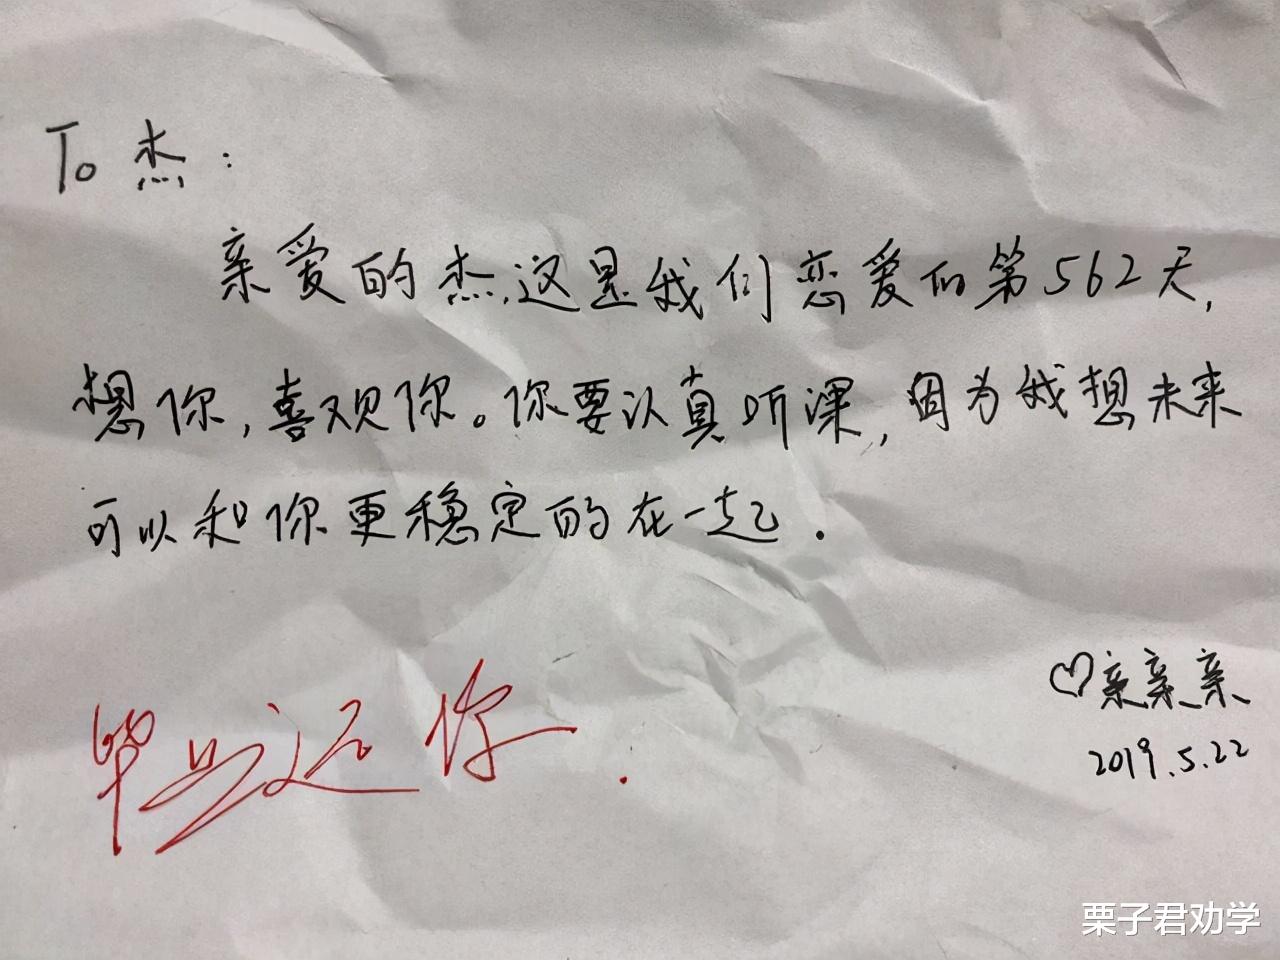 To 杰:
亲爱的杰,这是我们恋爱的第562天,
想你,喜欢你。你要认真听课,因为我想未来
可以和你更稳定的在一起.
♡亲亲亲
2019.5.22
毕业还你.
栗子君劝学